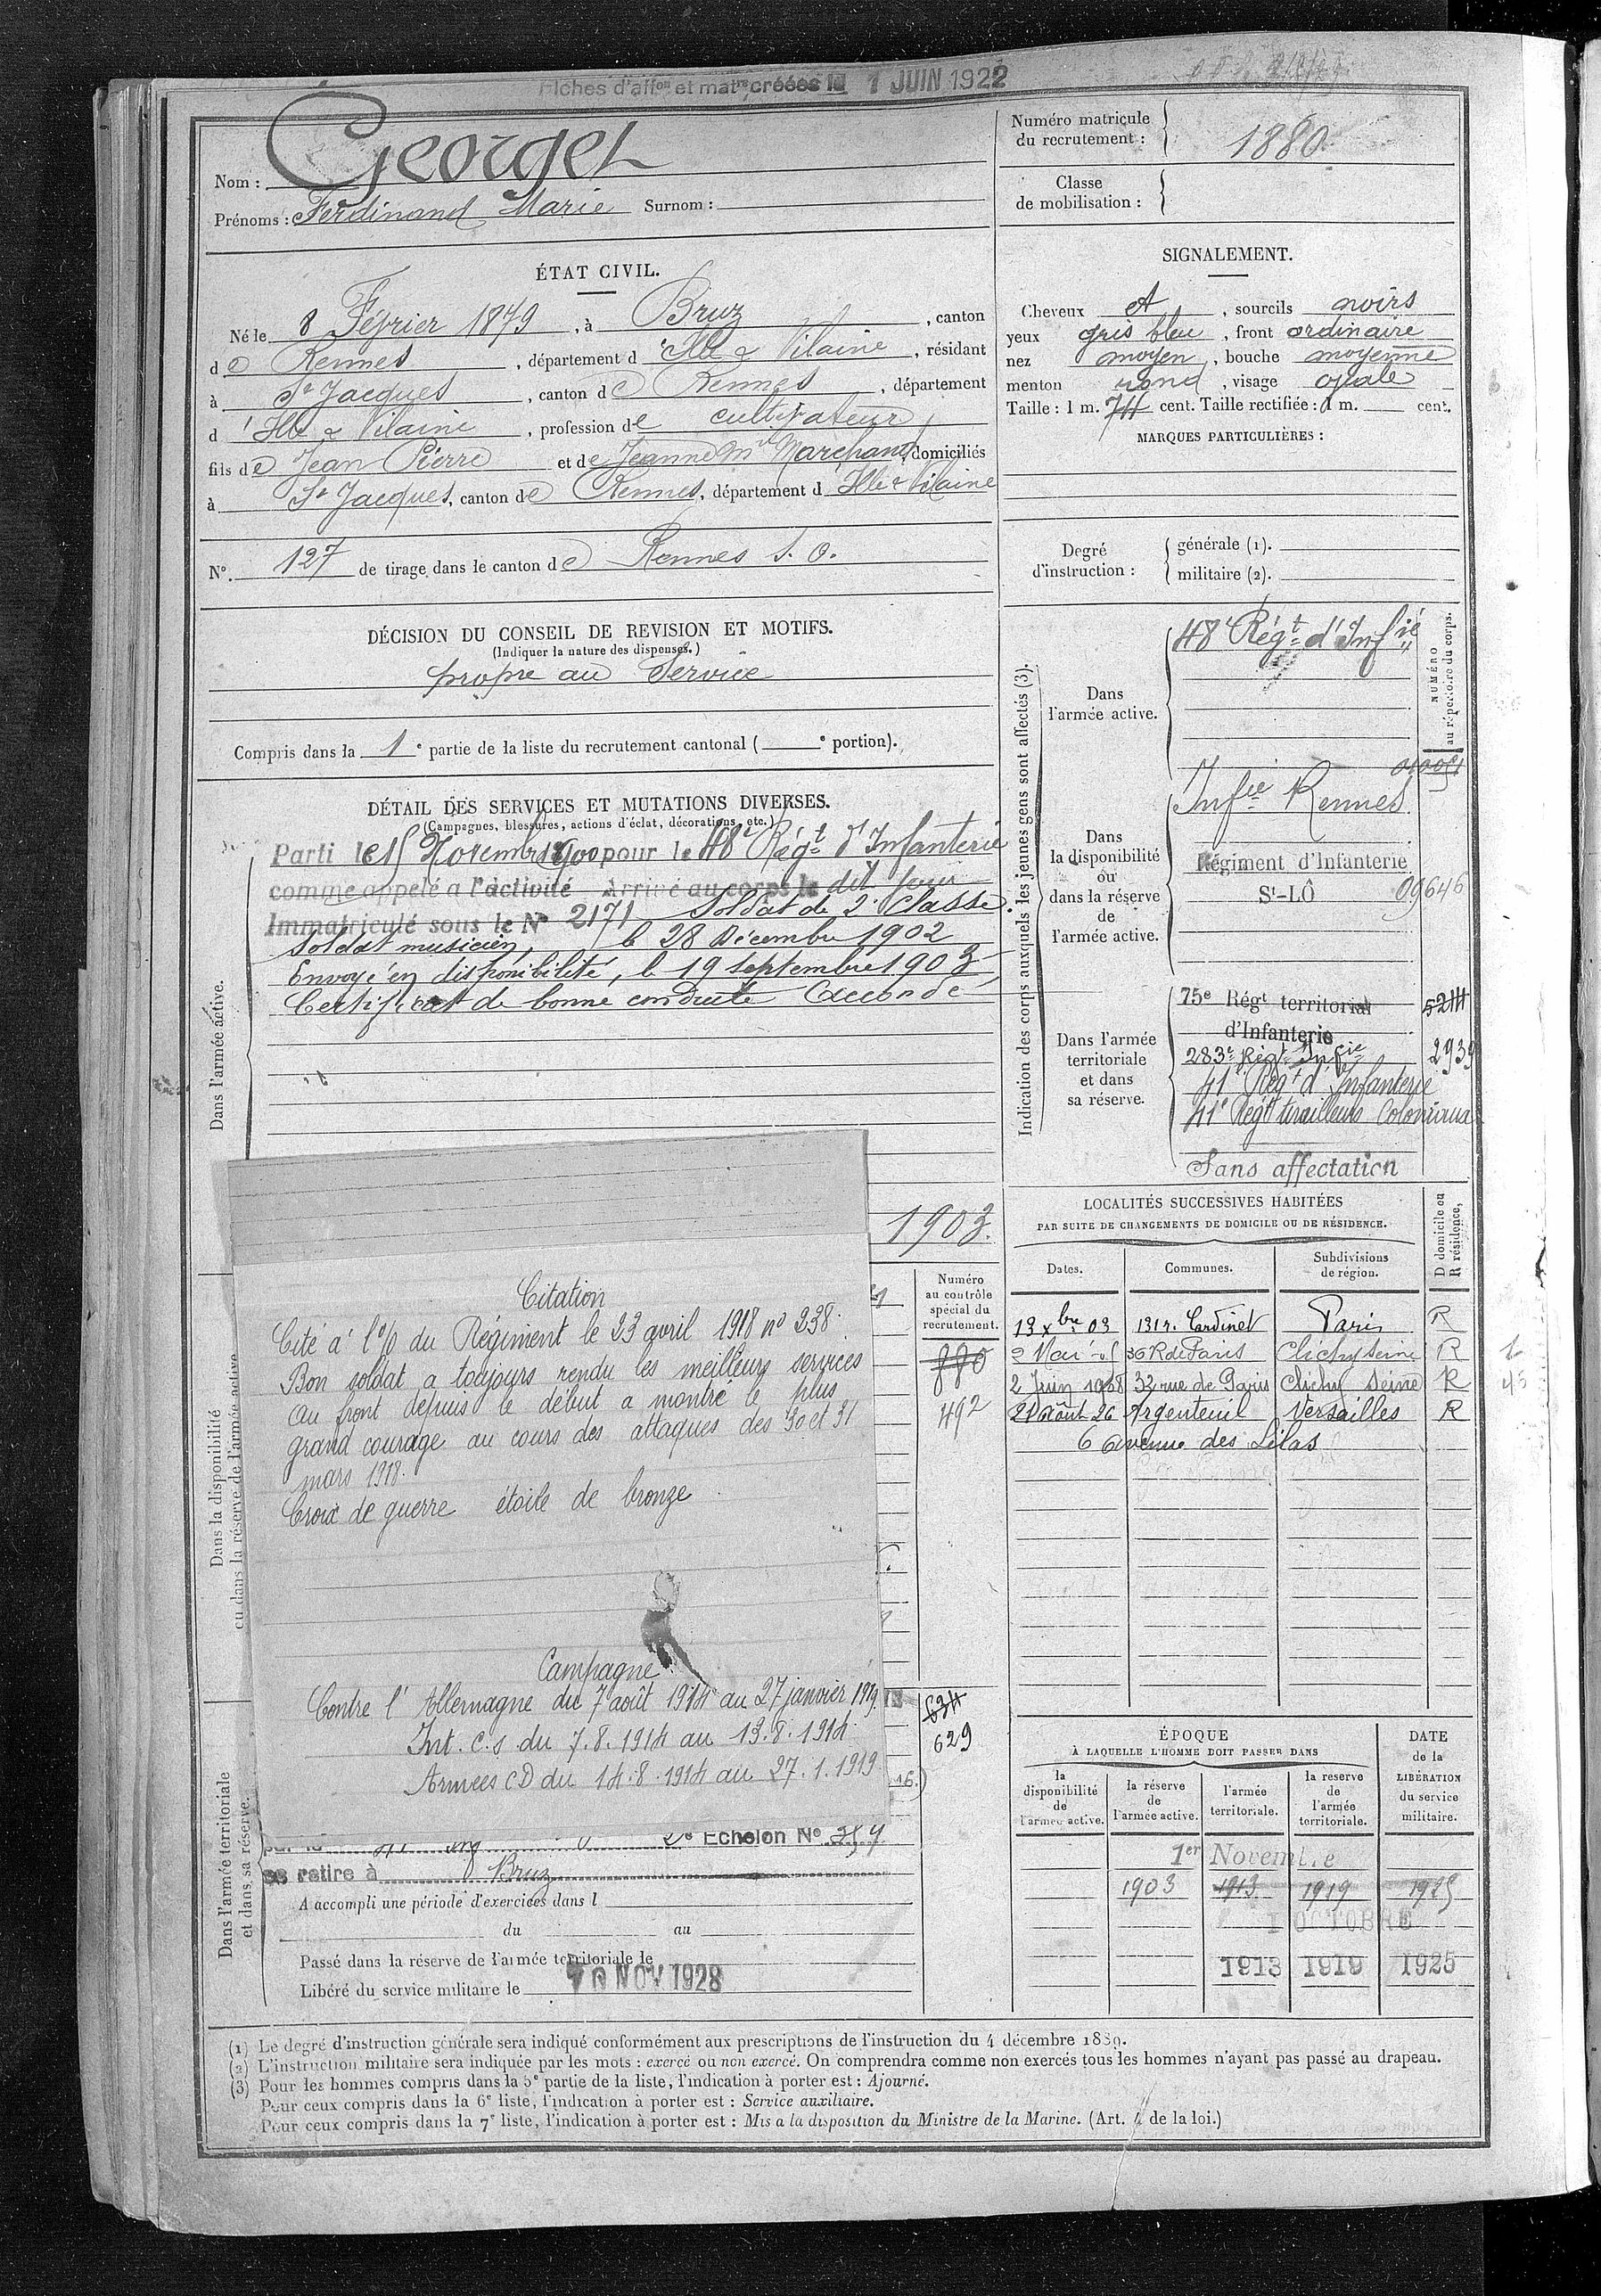 Fiches d'aff<sup>on</sup> et mat<sup>re</sup> créées le 1 JUIN 1922
Nom : Georget
Prénoms : Ferdinand Marie Surnom :
Numéro matricule du recrutement : 1880
Classe de mobilisation :
ÉTAT CIVIL.
Né le 8 Février 1879, à Bruz, canton
de Rennes, département d'Ille & Vilaine, résidant
à St Jacques, canton de Rennes, département
d'Ille & Vilaine, profession de cultivateur
fils de Jean Pierre et de Jeanne Mie Marchand, domiciliés
à St Jacques, canton de Rennes, département d Ille & Vilaine
N°. 127 de tirage dans le canton de Rennes S. O.
SIGNALEMENT.
Cheveux et, sourcils noirs
yeux gris bleu, front ordinaire
nez moyen, bouche moyenne
menton rond, visage ovale
Taille : 1 m. 74 cent. Taille rectifiée : 1 m. cent.
MARQUES PARTICULIÈRES :
Degré d'instruction :
générale (1).
militaire (2).
DÉCISION DU CONSEIL DE REVISION ET MOTIFS.
(Indiquer la nature des dispenses.)
propre au Service
Compris dans la 1e partie de la liste du recrutement cantonal ( e portion).
DÉTAIL DES SERVICES ET MUTATIONS DIVERSES.
(Campagnes, blessures, actions d'éclat, décorations, etc.)
Dans l'armée active.
Parti le 15 Novembre 1900 pour le 48e Régt d'Infanterie
comme appelé a l'activité Arrivé au corps le dit jour
Immatriculé sous le No 2171 Soldat de 2e Classe.
Soldat musicien, le 28 Décembre 1902
Envoyé en disponibilité, le 19 septembre 1903
Certificat de bonne conduite Accordé
1903.
Numéro au contrôle spécial du recrutement.
880
492
Dans la disponibilité
ou dans la réserve de l'armée active
Citation
Cité à l'o/o du Régiment le 23 avril 1918 no 238.
Bon soldat a toujours rendu les meilleurs services
au front depuis le début a montré le plus
grand courage au cours des attaques des 30 et 31
mars 1918.
Croix de guerre étoile de bronze.
Campagne
Contre l'Allemagne du 7 août 1914 au 27 janvier 1919.
Int. C.S du 7.8.1914 au 13.8.1914
Armées CD du 14.8.1914 au 27.1.1919
634
629
16.)
Dans l'armée territoriale
et dans sa réserve.
Echelon No 254
se retire à Bruz
A accompli une période d'exercices dans l
du au
Passé dans la réserve de l'armée territoriale le
Libéré du service militaire le 10 NOV 1928
Indication des corps auxquels les jeunes gens sont affectés (3).
NUMÉRO au répertoire du corps.
Dans l'armée active.
48e Régt d'Infie
Dans la disponibilité ou dans la réserve de l'armée active.
Infie Rennes
Régiment d'Infanterie
St-LÔ 09646
Dans l'armée territoriale et dans sa réserve.
75e Régt territorial 5244
d'Infanterie
283e Régt Infie 2939
41e Régt d'Infanterie
41e Régt tirailleurs Coloniaux
Sans affectation
LOCALITÉS SUCCESSIVES HABITÉES
PAR SUITE DE CHANGEMENTS DE DOMICILE OU DE RÉSIDENCE.
Dates. Communes. Subdivisions de région. D domicile ou R résidence.
13 xbre 03 131 r. Cardinet Paris R
2 Mai 05 36 R de Paris Clichy Seine R
2 Juin 1908 32 rue de Paris Clichy Seine R
21 août 26 Argenteuil Versailles R
6 avenue des Lilas
ÉPOQUE
À LAQUELLE L'HOMME DOIT PASSER DANS
DATE de la LIBÉRATION du service militaire.
la disponibilité de l'armée active.
la réserve de l'armée active.
l'armée territoriale.
la reserve de l'armée territoriale.
1er Novembre
1903 1913 1919 1925
1 OCTOBRE
1913 1919 1925
(1) Le degré d'instruction générale sera indiqué conformément aux prescriptions de l'instruction du 4 décembre 1889.
(2) L'instruction militaire sera indiquée par les mots : exercé ou non exercé. On comprendra comme non exercés tous les hommes n'ayant pas passé au drapeau.
(3) Pour les hommes compris dans la 5e partie de la liste, l'indication à porter est : Ajourné.
Pour ceux compris dans la 6e liste, l'indication à porter est : Service auxiliaire.
Pour ceux compris dans la 7e liste, l'indication à porter est : Mis a la disposition du Ministre de la Marine. (Art. 4 de la loi.)